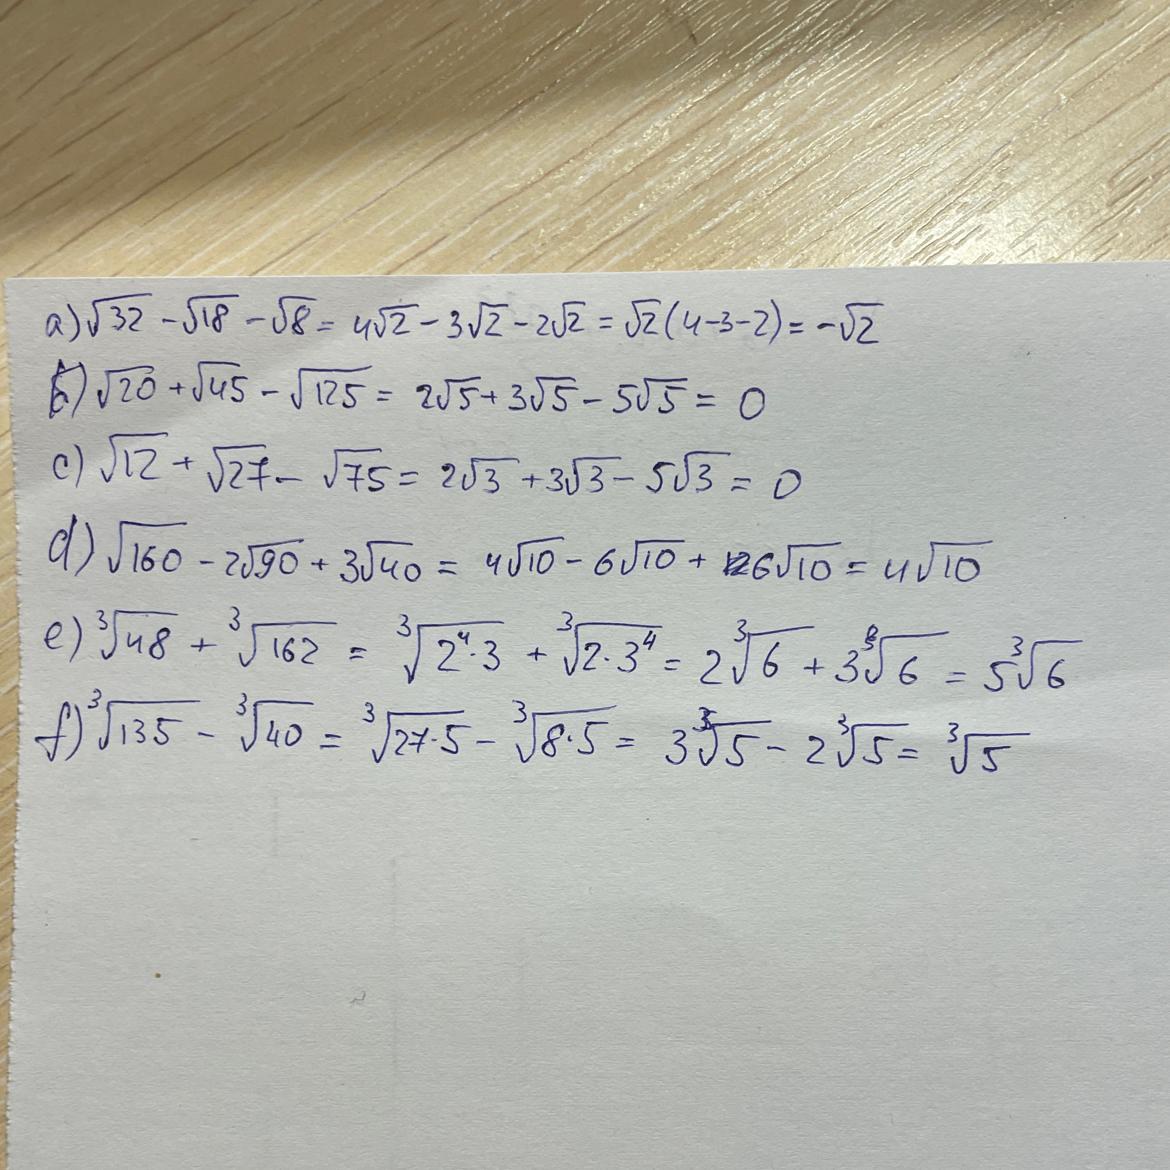 a) √32 - √18 - √8 = 4√2 - 3√2 - 2√2 = √2(4-3-2) = -√2
b) √20 + √45 - √125 = 2√5 + 3√5 - 5√5 = 0
c) √12 + √27 - √75 = 2√3 + 3√3 - 5√3 = 0
d) √160 - 2√90 + 3√40 = 4√10 - 6√10 + 6√10 = 4√10
e) ³√48 + ³√162 = ³√2⁴·3 + ³√2·3⁴ = 2³√6 + 3³√6 = 5³√6
f) ³√135 - ³√40 = ³√27·5 - ³√8·5 = 3³√5 - 2³√5 = ³√5